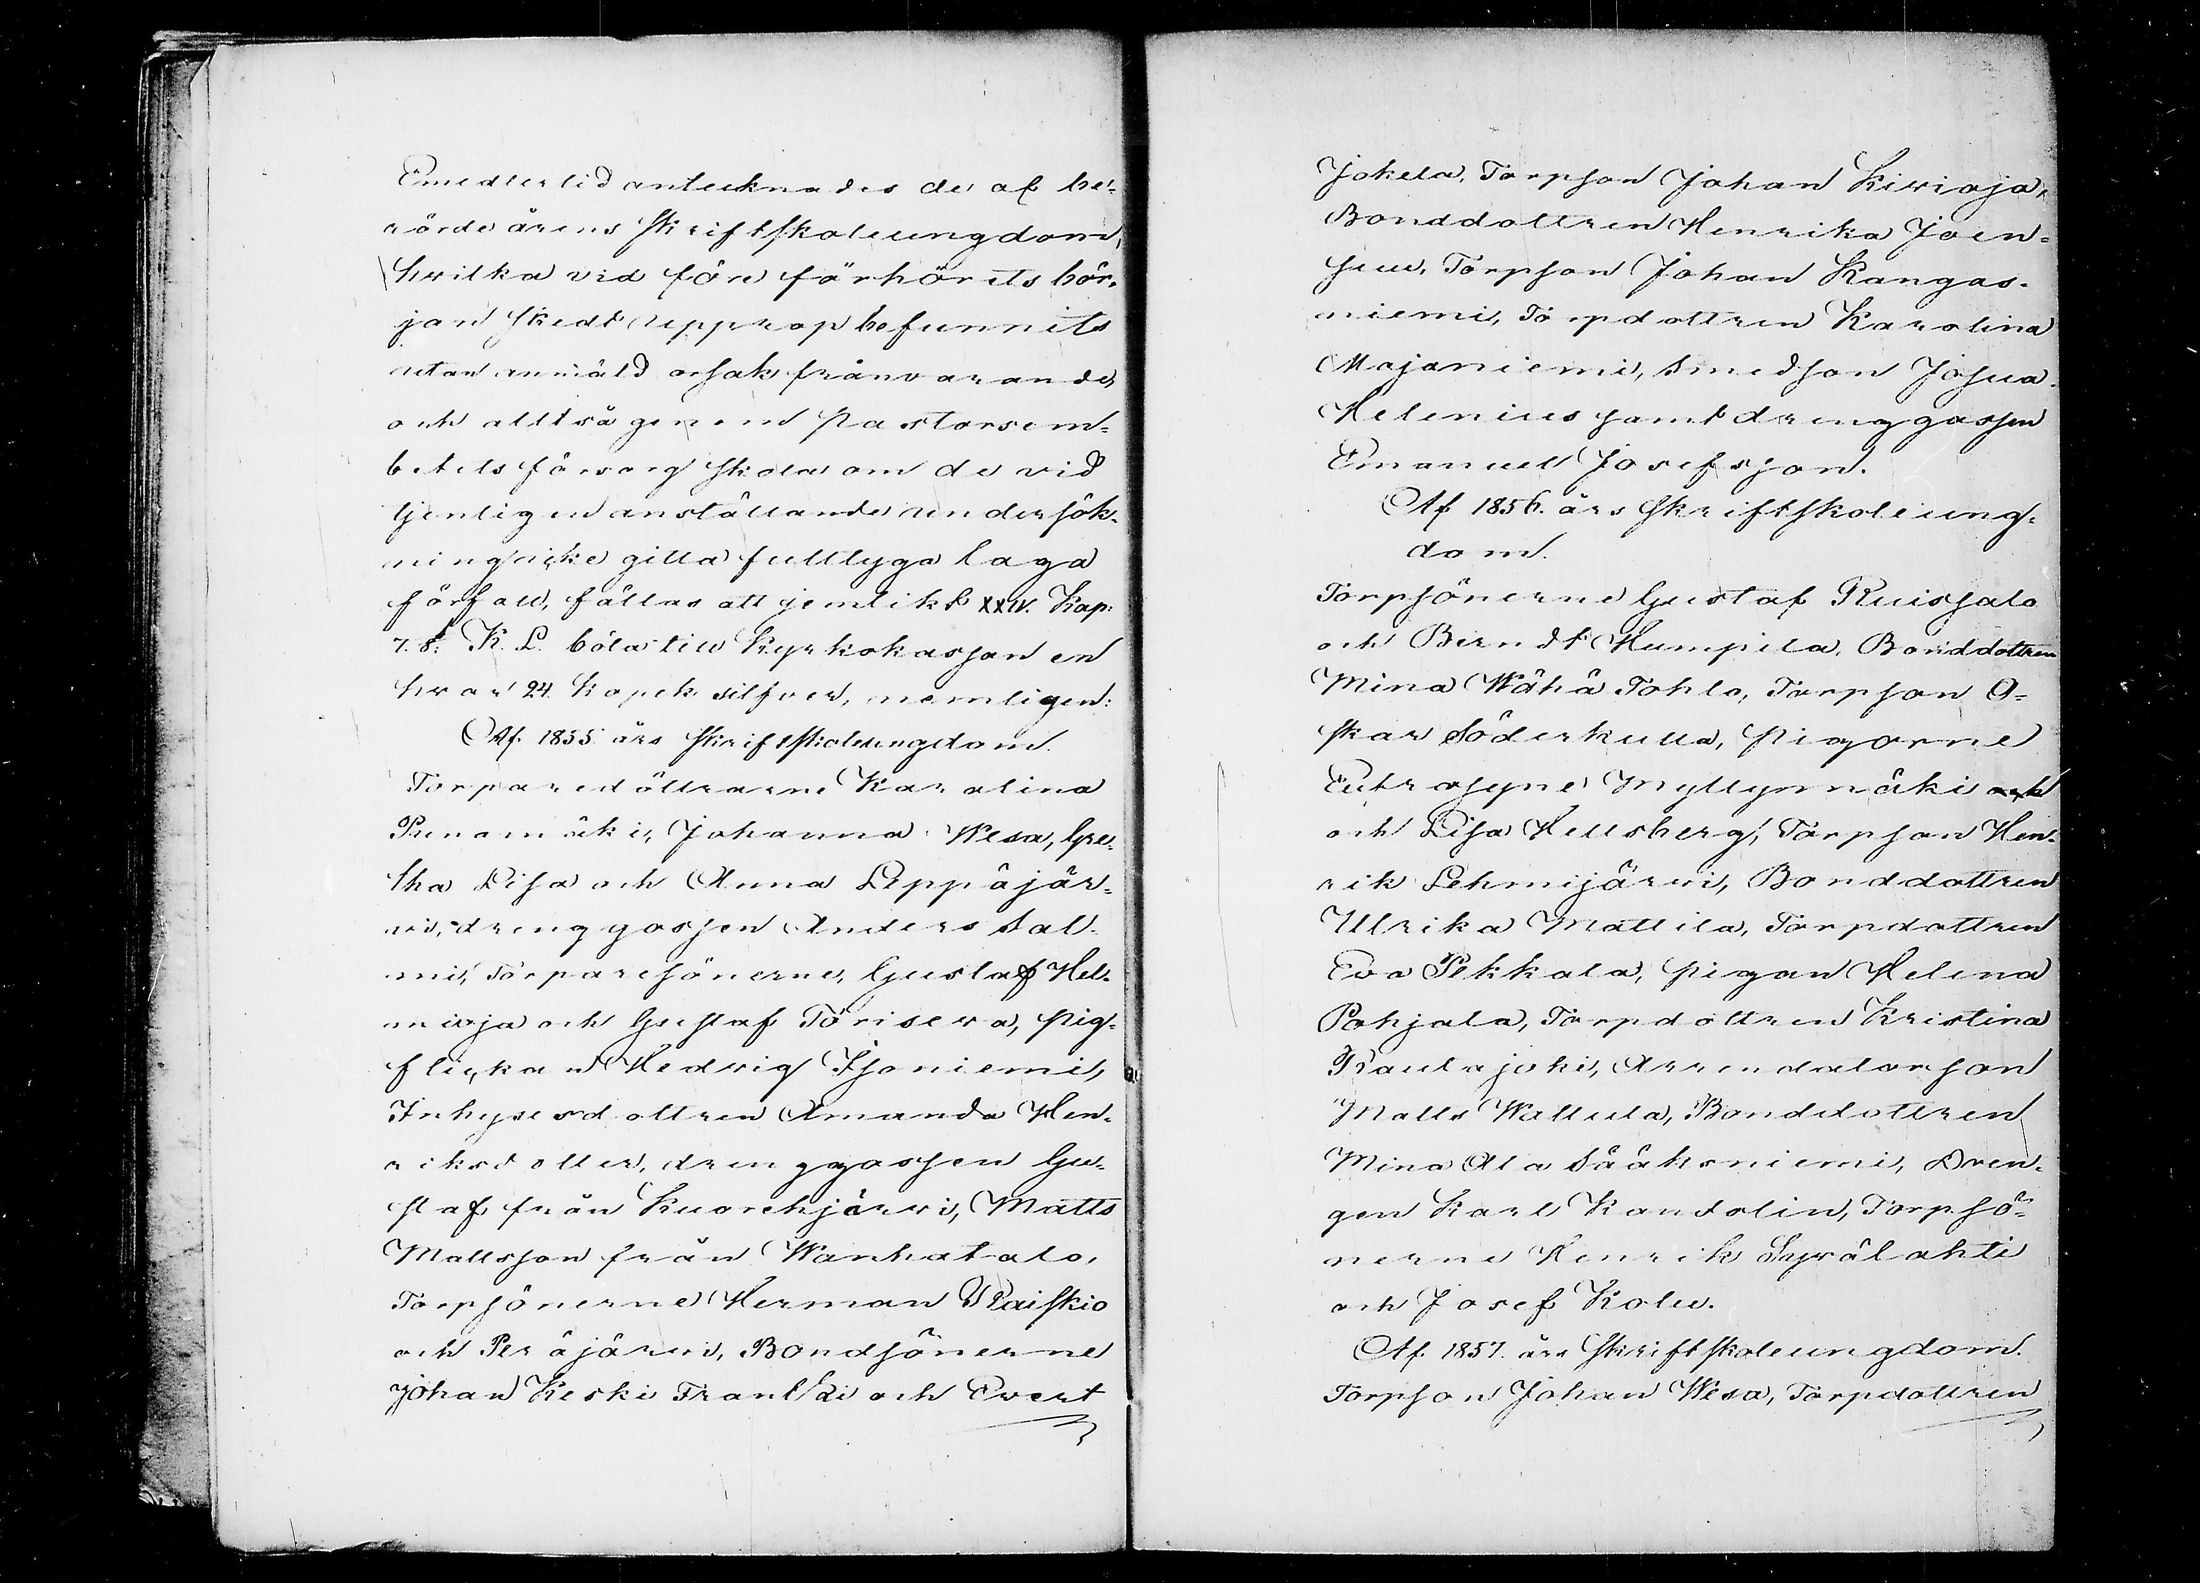 Emedlertid antecknades de af be-
rörde årens Skriftskoleungdom,
hvilka vid före förhörets bör-
jan skedt upprop befunnits
utan anmäld orsak frånvarande
och alltså genom Pastorsem-
betets försorg skola om de vid
tjenligen anställande undersök-
ning icke gitta fulltyga laga
förfall, fällas att jemlikt XXIV. Kap:
7. §. K. L. böta till Kyrkokassan en
hvar 24. kopek silfver, nemligen:
Af 1855 års Skriftskoleungdom.
Torparedöttrarne Karolina
Punamäki, Johanna Wesa, Gre-
tha Lisa och Anna Leppäjär-
wi, drenggossen Anders Sal-
mi, Torparesönerne, Gustaf Hel-
mioja och Gustaf Törisewa, Pig-
flickan Hedvig Isoniemi,
Inhysesdottren Amanda Hen-
riksdotter, drenggossen Gu-
staf från Kuorehjärwi, Matts
Mattsson från Wanhatalo,
Torpsönerne Herman Raiskio
och Peräjärwi, Bondsönerne
Johan Keski Frantti och Evert
Jokela, Torpson Johan Kivioja,
Bonddottren Henrika Joen-
suu, Torpson Johan Kangas-
niemi, Torpdottren Karolina
Majaniemi, Smedson Josua
Helenius samt drenggossen
Emanuel Josefsson.
Af 1856. års Skriftskoleung-
dom.
Torpsönerne Gustaf Ruissalo
och Berndt Humpila, Bonddottren
Mina Wähä Tohlo, Torpson O-
skar Söderkulla, Pigorne
Eufrosyne Myllymäki och
och Lisa Hellsberg, Torpson Hen-
rik Lehmijärwi, Bonddottren
Ulrika Mattila, Torpdottren
Eva Pekkala, Pigan Helena
Pohjala, Torpdottren Kristina
Rautajoki, Arrendatorson
Matts Wattula, Bonddottren
Mina Ala Sääksniemi, Dren-
gen Karl Kandolin, Torpsö-
nerne Henrik Sywälahti
och Josef Kolu.
Af 1857. års Skriftskoleungdom.
Torpson Johan Wesa, Torpdottren